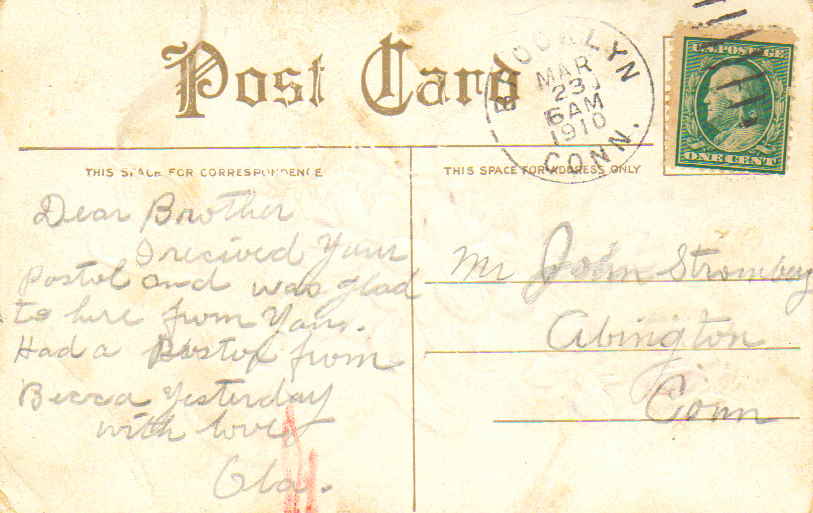 Post Card
BROOKLYN
MAR
23
6 AM
1910
CONN.
U.S. POSTAGE
ONE CENT
THIS SPACE FOR CORRESPONDENCE
THIS SPACE FOR ADDRESS ONLY
Dear Brother
I recived your
Postol and was glad
to here from you.
Had a Postol from
Becca yesterday
with love
Ola.
Mr John Stromberg
Abington
Conn